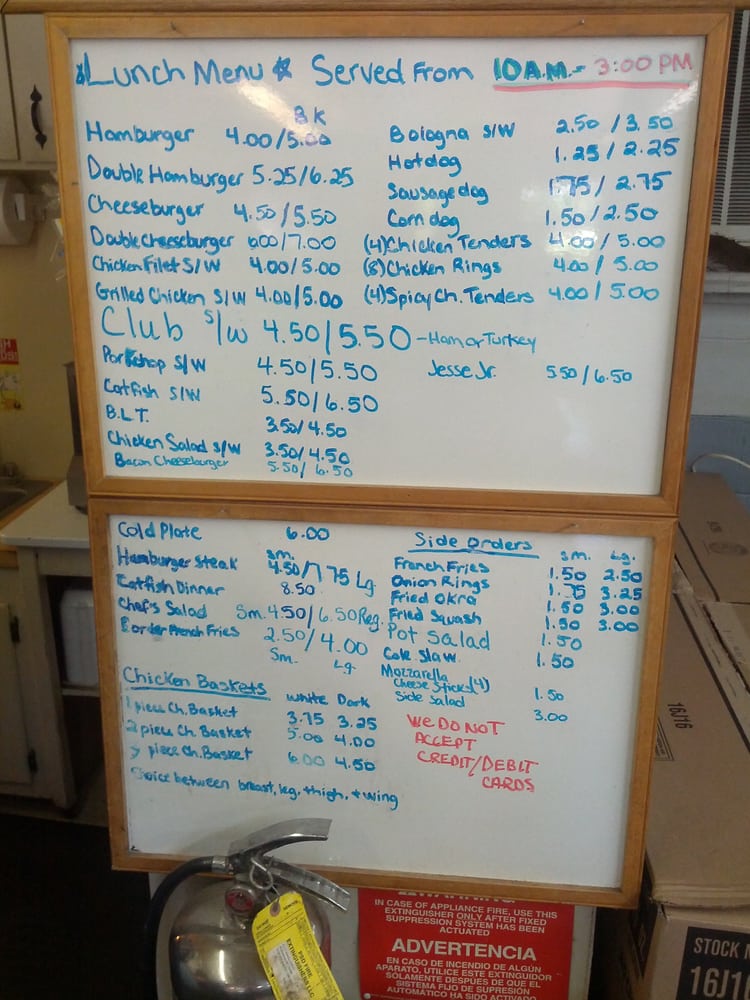 ☆Lunch Menu☆ Served From 10 A.M.- 3:00 PM
BK
Hamburger 4.00/5.00
Double Hamburger 5.25/6.25
Cheeseburger 4.50/5.50
Double cheeseburger 6.00/7.00
Chicken Filet S/W 4.00/5.00
Grilled Chicken S/W 4.00/5.00
Club S/W 4.50/5.50 - Ham or Turkey
Porkchop S/W 4.50/5.50
Catfish S/W 5.50/6.50
B.L.T. 3.50/4.50
Chicken Salad S/W 3.50/4.50
Bacon Cheeseburger 5.50/6.50
Bologna S/W 2.50/3.50
Hotdog 1.25/2.25
Sausage dog 1.75/2.75
Corndog 1.50/2.50
(4)Chicken Tenders 4.00/5.00
(8)Chicken Rings 4.00/5.00
(4)Spicy Ch. Tenders 4.00/5.00
Jesse Jr. 5.50/6.50
Cold Plate 6.00
Hamburger Steak sm. 4.50/7.75 Lg.
Catfish Dinner 8.50
Chef's Salad Sm. 4.50/6.50 Reg.
Border French Fries 2.50/4.00
Sm. Lg.
Chicken Baskets White Dark
1 piece Ch. Basket 3.75 3.25
2 piece Ch. Basket 5.00 4.00
3 piece Ch. Basket 6.00 4.50
Choice between breast, leg, thigh, + wing
Side Orders Sm. Lg.
French Fries 1.50 2.50
Onion Rings 1.75 3.25
Fried Okra 1.50 3.00
Fried Squash 1.50 3.00
Pot Salad 1.50
Cole Slaw 1.50
Mozzarella
Cheese Sticks (4)
Side Salad
1.50
3.00
WE DO NOT
ACCEPT
CREDIT/DEBIT
CARDS
IN CASE OF APPLIANCE FIRE, USE THIS
EXTINGUISHER ONLY AFTER FIXED
SUPPRESSION SYSTEM HAS BEEN
ACTUATED
ADVERTENCIA
EN CASO DE INCENDIO DE ALGÚN
APARATO, UTILICE ESTE EXTINGUIDOR
SOLAMENTE DESPUES DE QUE EL
SISTEMA FIJO DE SUPRESIÓN
AUTOMÁTICO HA SIDO ACTIVADO
16J16
STOCK
16J1